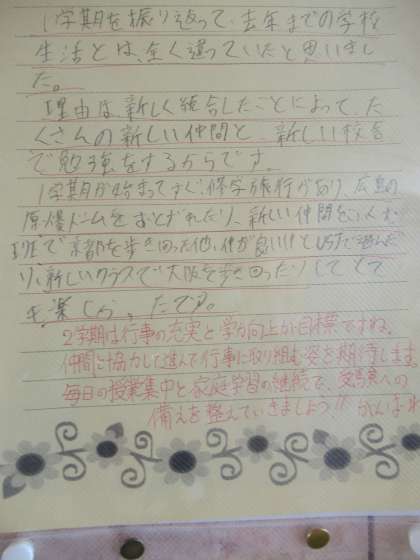 1学期を振り返って、去年までの学校
生活とは、全く違っていたと思いまし
た。
理由は、新しく統合したことによって、た
くさんの新しい仲間と、新しい校舎
で勉強をするからです。
1学期が始まってすぐ、修学旅行があり、広島の
原爆ドームをおとずれたり、新しい仲間を
班で京都を歩き回った他、仲が良い とUSJで遊んだ
り、新しいクラスで大阪を歩き回ったりしてとて
も楽しかったです。
2学期は行事の充実と学力向上が目標ですね。
仲間と協力して進んで行事に取り組む姿を期待します。
毎日の授業集中と家庭学習の継続で、受験への
備えを整えていきましょう!! がんばれ